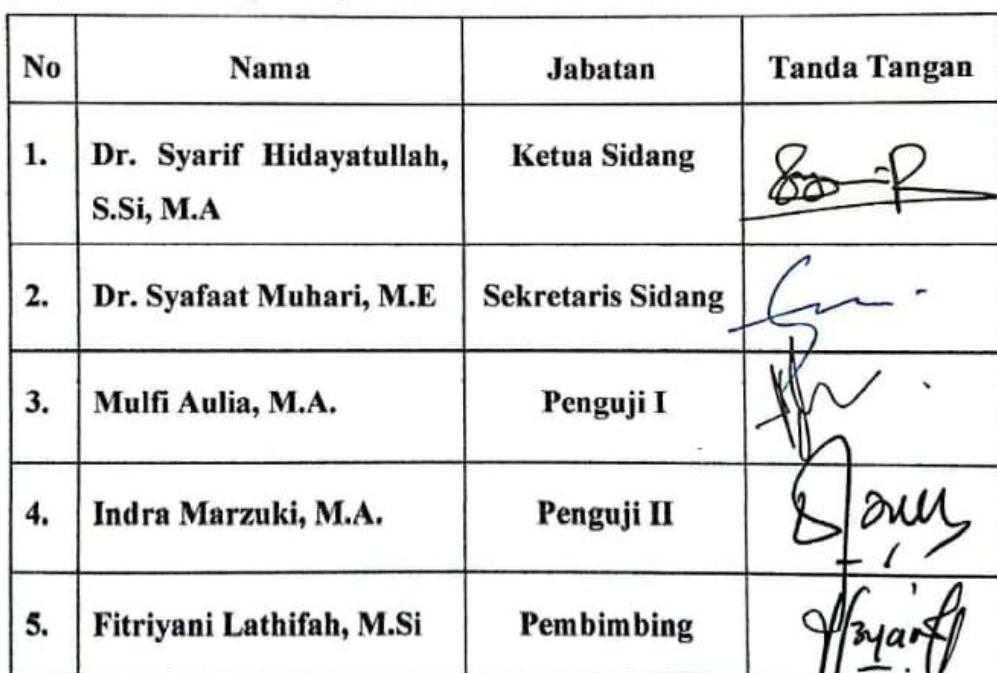 No Nama Jabatan Tanda Tangan
1. Dr. Syarif Hidayatullah, Ketua Sidang
S.Si, M.A
2. Dr. Syafaat Muhari, M.E Sekretaris Sidang
3. Mulfi Aulia, M.A. Penguji I
4. Indra Marzuki, M.A. Penguji II
5. Fitriyani Lathifah, M.Si Pembimbing